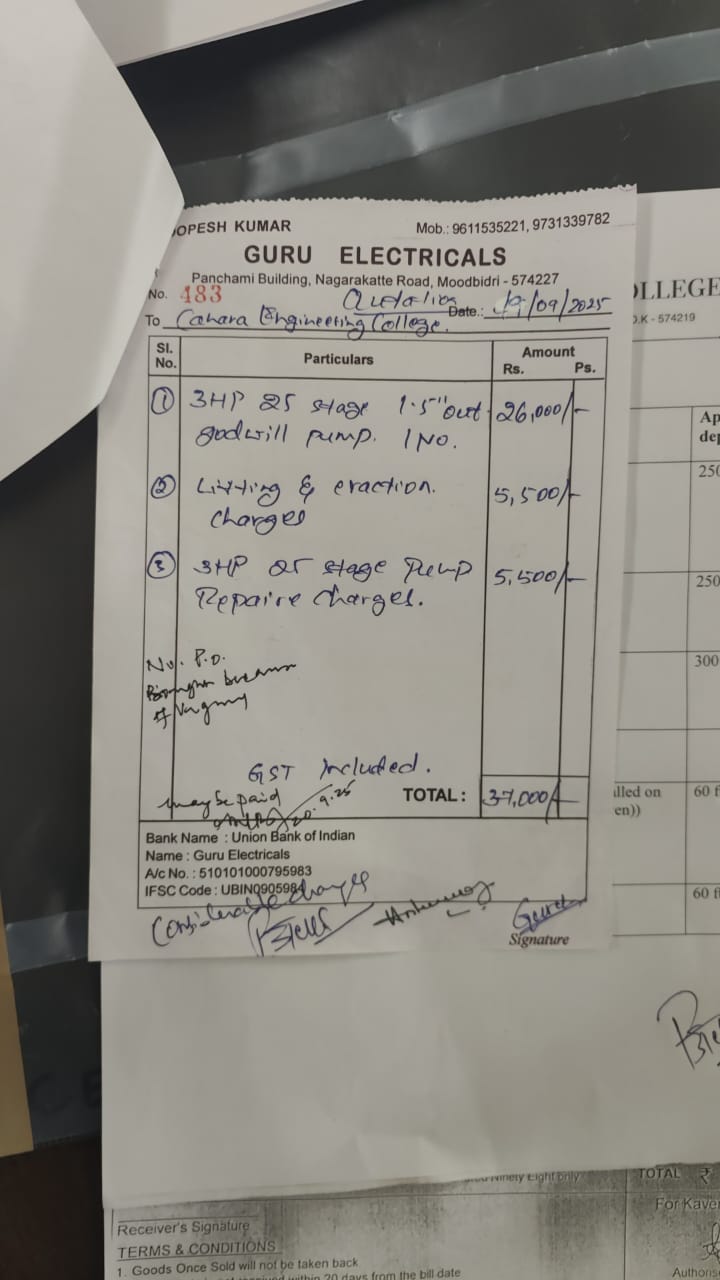 OPESH KUMAR
Mob.: 9611535221, 9731339782
GURU ELECTRICALS
Panchami Building, Nagarakatte Road, Moodbidri - 574227
No. 483
Date.: 19/09/2025
To Canara Engineering College.
Sl. No.
Particulars
Amount
Rs. Ps.
① 3HP 25 stage 1.5" out 26,000/-
godwill pump. 1 NO.
② Litting & eraction. 5,500/-
charges
③ 3HP 25 stage Pump 5,500/-
Repaire charges.
No. P.O.
of
GST Included.
may be paid
20.9.25
TOTAL : 37,000/-
Bank Name : Union Bank of Indian
Name : Guru Electricals
A/c No. : 510101000795983
IFSC Code : UBIN0905984
Signature
OLLEGE
D.K - 574219
Ap
dep
250
250
300
alled on
en))
60 f
60 f
Ninety Eight only
TOTAL ₹
For Kave
Receiver's Signature
TERMS & CONDITIONS
1. Goods Once Sold will not be taken back
within 20 days from the bill date
Authoris